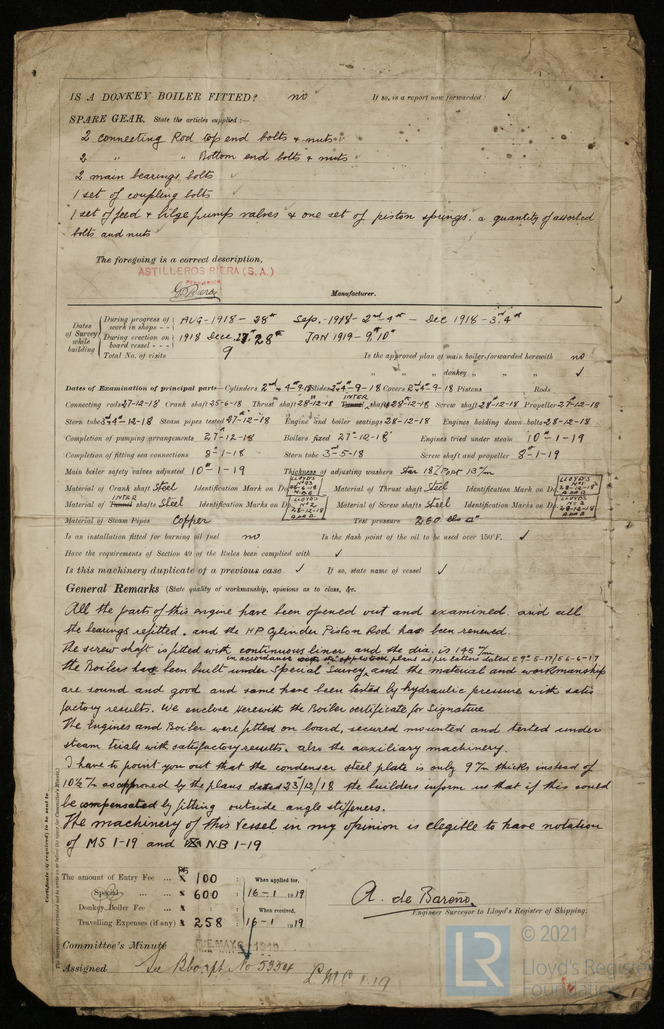 IS A DONKEY BOILER FITTED? no If so, is a report now forwarded: ✓
SPARE GEAR. State the articles supplied:—
2 connecting Rod top end bolts & nuts
2 " " Bottom end bolts & nuts
2 main bearings bolts
1 set of coupling bolts
1 set of feed & bilge pump valves & one set of piston springs. a quantity of assorted
bolts and nuts
The foregoing is a correct description,
ASTILLEROS RIERA (S.A.)
Manufacturer.
Dates of Survey while building
During progress of work in shops - - AUG-1918-28th Sep.-1918-2nd-4th - Dec 1918-3rd 4th
During erection on board vessel - - - 1918 Dece. 27th 28th JAN 1919-9th 10th
Total No. of visits 9 Is the approved plan of main boiler forwarded herewith no
" " " donkey " " ✓
Dates of Examination of principal parts—Cylinders 2nd & 4th-9-18 Slides 2nd 4th-9-18 Covers 2nd 4th-9-18 Pistons Rods
Connecting rods 27-12-18 Crank shaft 25-6-18 Thrust shaft 28-12-18 INTER shafts 28-12-18 Screw shaft 28-12-18 Propeller 27-12-18
Stern tube 3rd 4th-12-18 Steam pipes tested 27-12-18 Engine and boiler seatings 28-12-18 Engines holding down bolts 28-12-18
Completion of pumping arrangements 27-12-18 Boilers fixed 27-12-18 Engines tried under steam 10th-1-19
Completion of fitting sea connections 8-1-18 Stern tube 3-5-18 Screw shaft and propeller 8-1-19
Main boiler safety valves adjusted 10th-1-19 Thickness of adjusting washers Star 18 7/m Port 13 7/m
Material of Crank shaft Steel Identification Mark on Do. LLOYD'S Material of Thrust shaft Steel Identification Mark on Do. LLOYD'S
Material of INTER shafts Steel Identification Marks on Do. LLOYD'S Material of Screw shafts Steel Identification Marks on Do. LLOYD'S
Material of Steam Pipes Copper Test pressure 260 lbs □"
Is an installation fitted for burning oil fuel no Is the flash point of the oil to be used over 150°F. ✓
Have the requirements of Section 49 of the Rules been complied with ✓
Is this machinery duplicate of a previous case ✓ If so, state name of vessel ✓
General Remarks (State quality of workmanship, opinions as to class, &c.
All the parts of this engine have been opened out and examined and all
the bearings refitted, and the HP Cylinder Piston Rod has been renewed.
The screw shaft is fitted with continuous liner and the dia. is 195 7/m
in accordance with the approved plans as per letters dated E 9-5-17/E 6-6-17
the Boilers has been built under Special Survey, and the material and workmanship
are sound and good and same have been tested by hydraulic pressure with satis
factory results. We enclose herewith the Boiler certificate for Signature
The Engines and Boiler were fitted on board, secured mounted and tested under
steam trials with satisfactory results, also the auxiliary machinery.
I have to point you out that the condenser steel plate is only 9 7/m thicks instead of
10½ 7/m as approved by the plans dated 23/12/18 the builders inform us that if this could
be compensated by fitting outside angle stiffeners.
The machinery of this Vessel in my opinion is elegible to have notation
of MS 1-19 and NB 1-19
The amount of Entry Fee ... Pts 100 When applied for,
Special ... ... 600 16-1-1919
Donkey Boiler Fee ... When received,
Travelling Expenses (if any) 258 16-1-1919
A. de Bareño
Engineer Surveyor to Lloyd's Register of Shipping.
Committee's Minute TUE. MAY 6 1919
Assigned See Bbo. rpt. No 5354 LMC 1.19
LR
© 2021
Lloyd's Register
Foundation